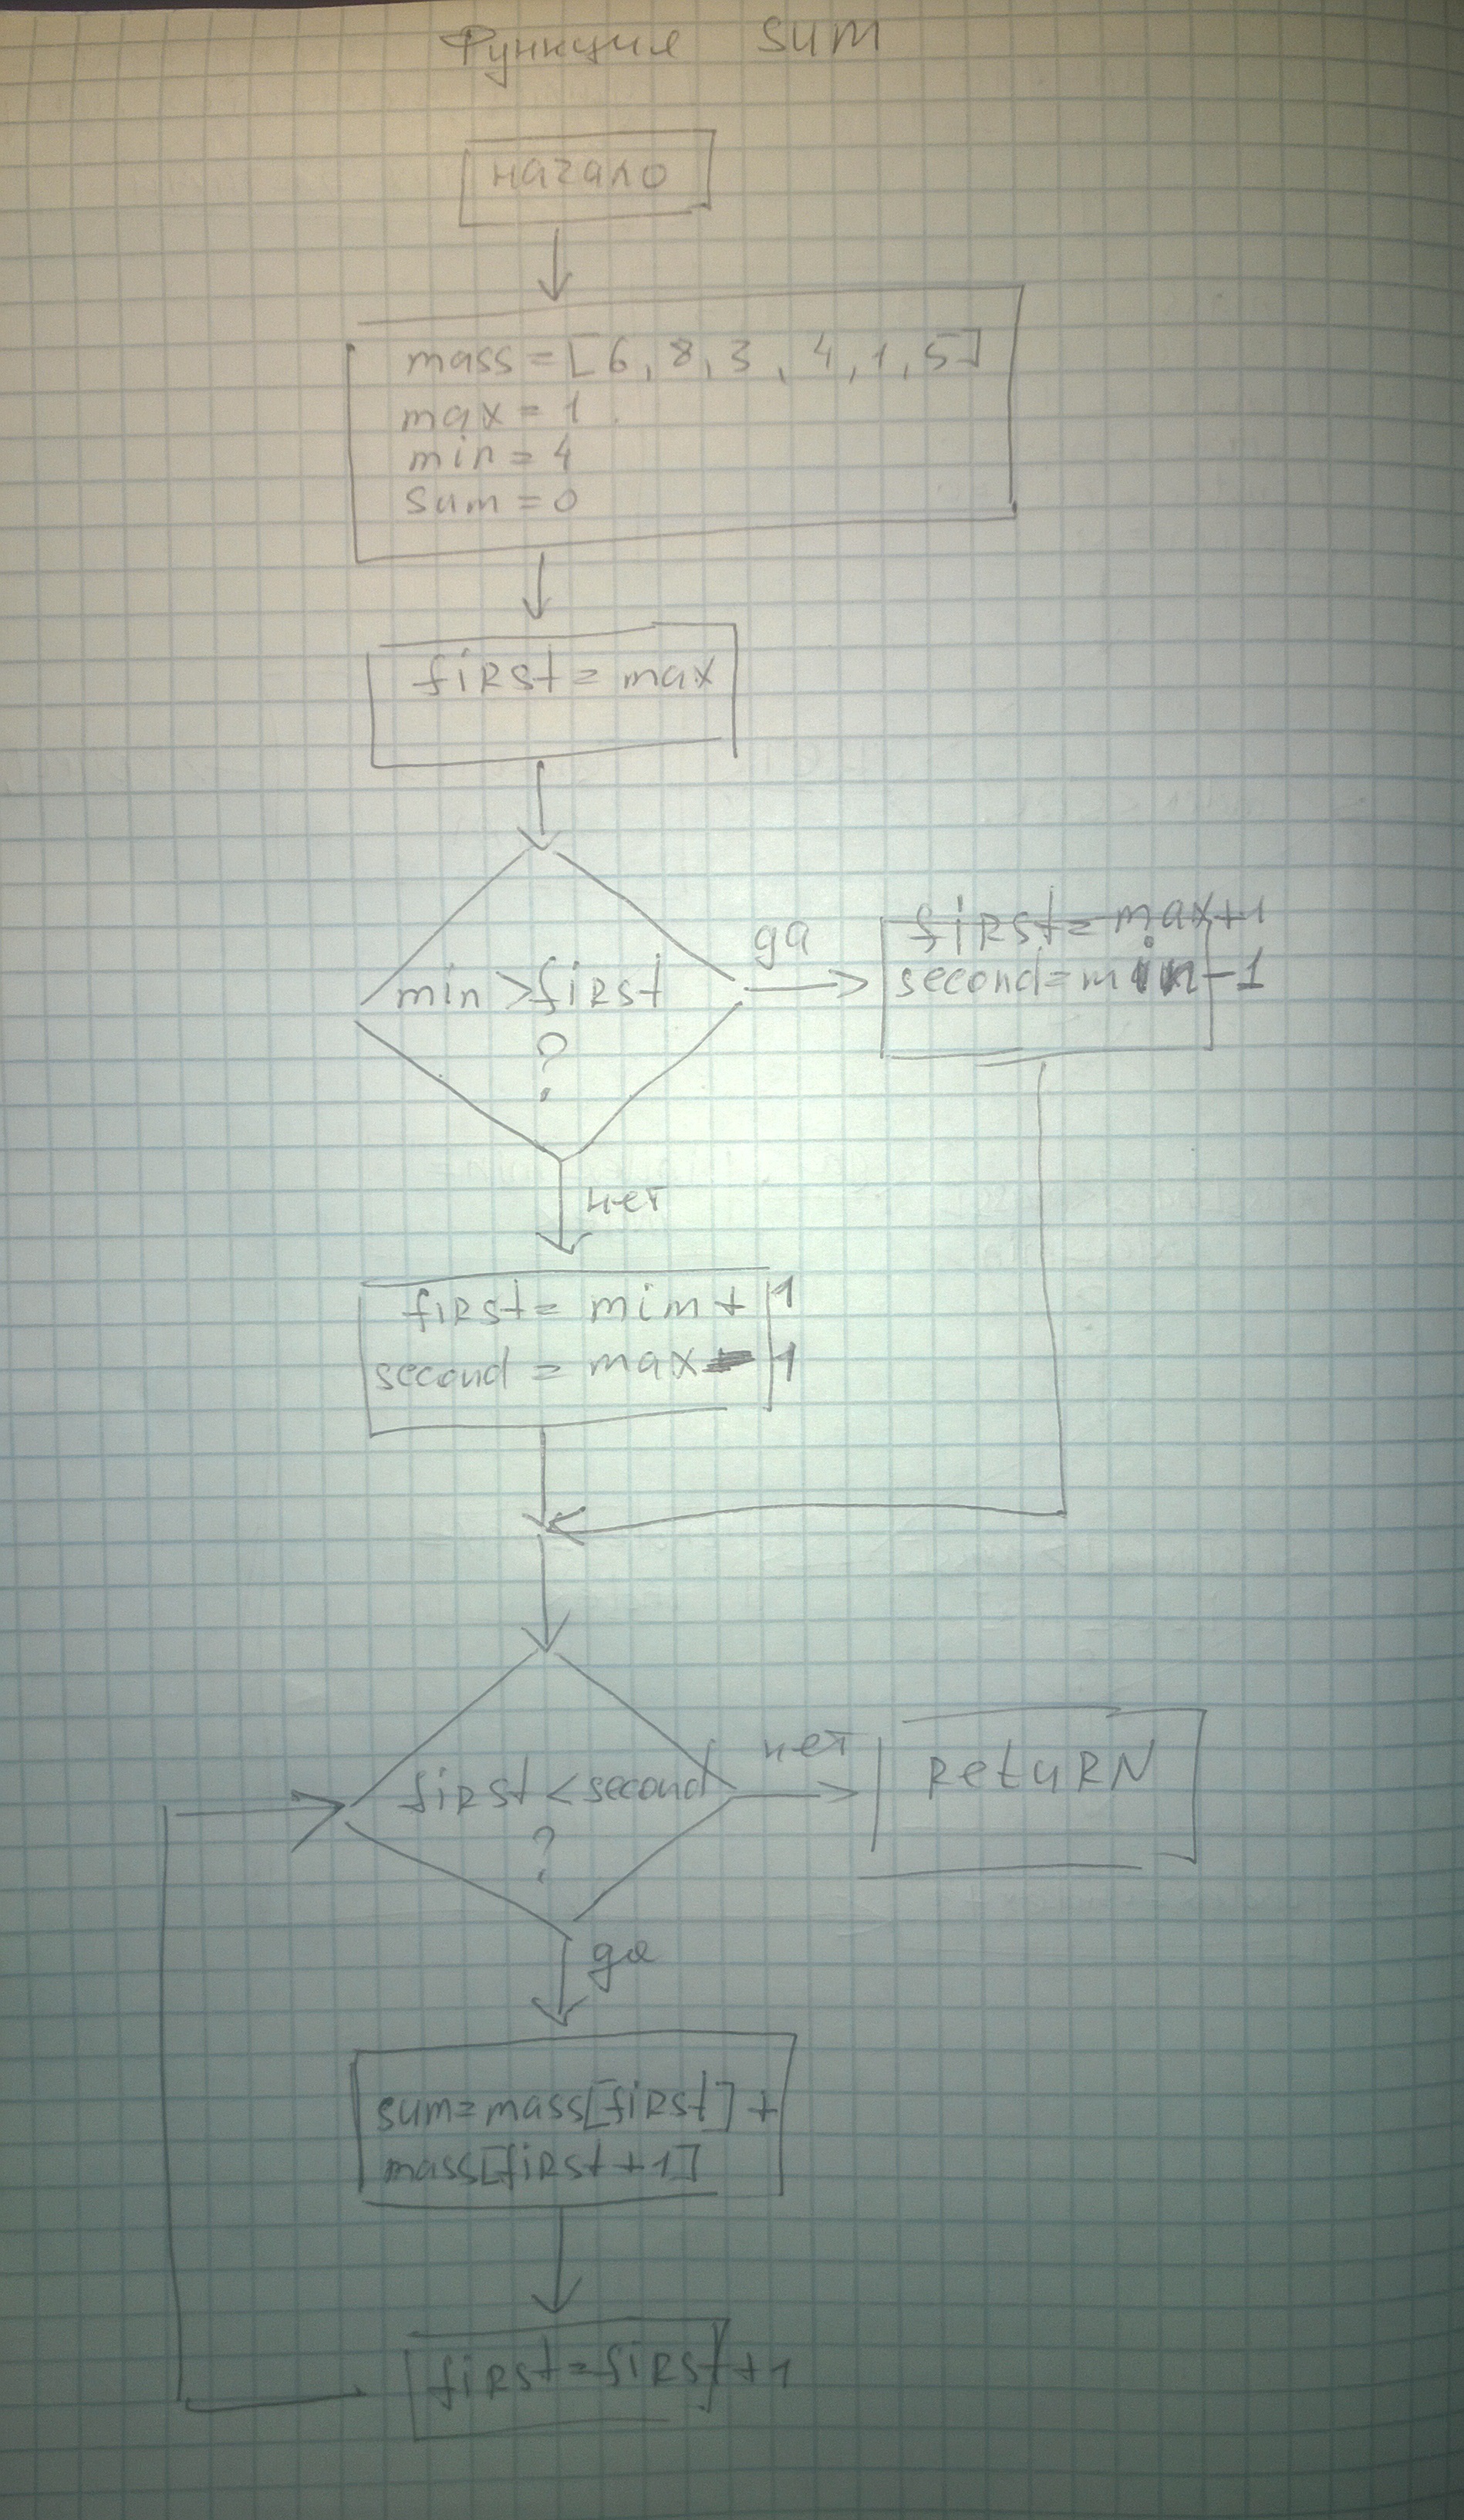 Функция sum
начало
mass = [6, 8, 3, 4, 1, 5]
max = 1
min = 4
sum = 0
first = max
min > first
?
да
first = max+1
second = min-1
нет
first = min + 1
second = max - 1
first < second
?
нет
return
да
sum = mass[first] +
mass[first + 1]
first = first + 1